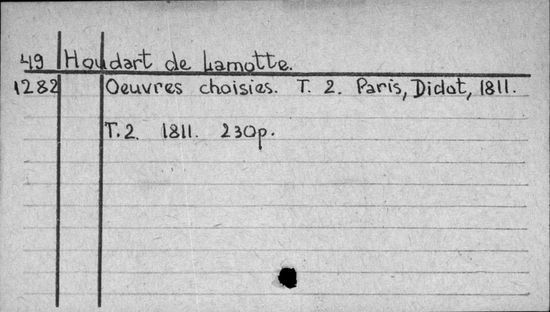 49 Houdart de Lamotte.
1282 Oeuvres choisies. T. 2. Paris, Didot, 1811.
T.2. 1811. 230p.